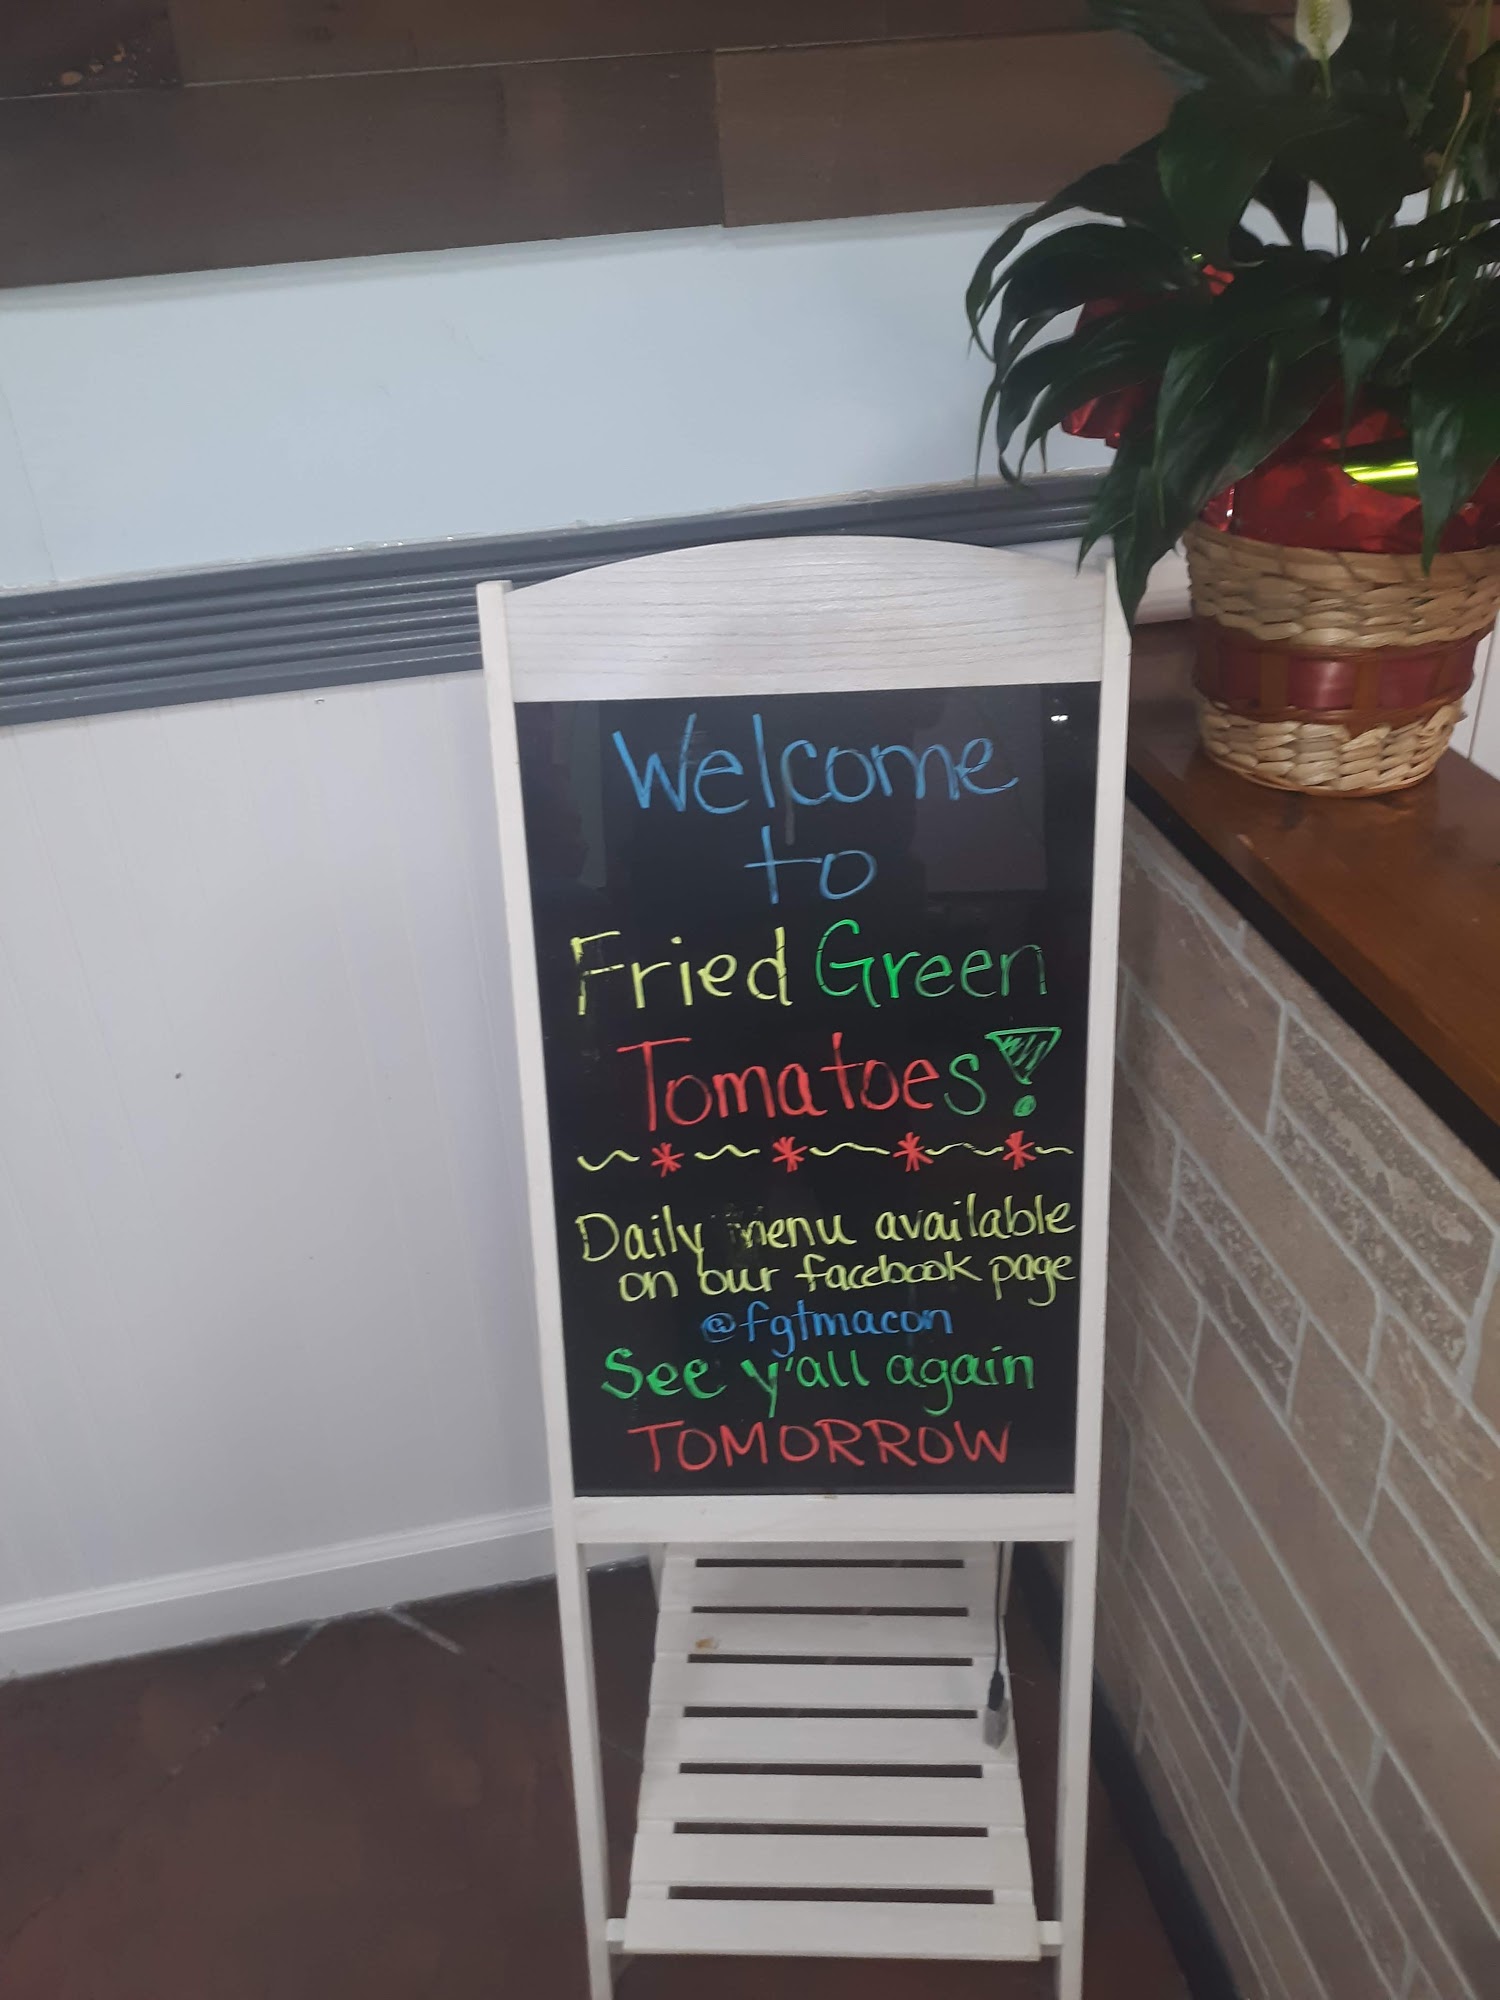 Welcome
to
Fried Green
Tomatoes!
Daily menu available
on our facebook page
@fgtmacon
See y'all again
TOMORROW